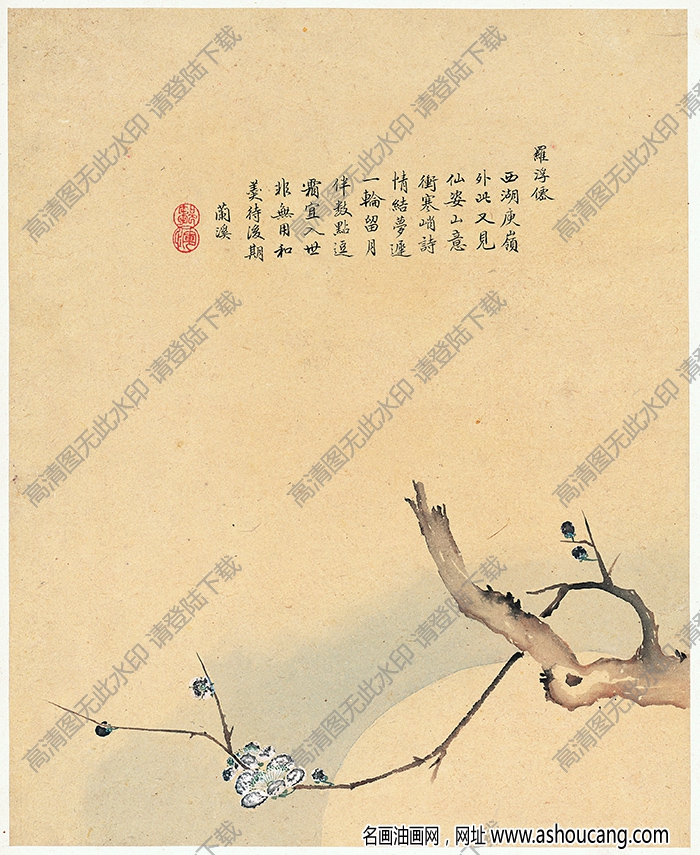 羅浮僊
西湖庾嶺
外此又見
仙姿山意
衝寒峭詩
情結夢遲
一輪留月
伴数點逗
霜宜入世
非無用和
羹待後期
蘭溪
高清图无此水印 请登陆下载
高清图无此水印 请登陆下载
高清图无此水印
高清图无此水印 请登陆下载
高清图无此水印 请登陆下载
高清图无此水印
高清图无此水印 请登陆下载
高清图无此水印 请登陆下载
高清图无此水印
名画油画网，网址 www.ashoucang.com